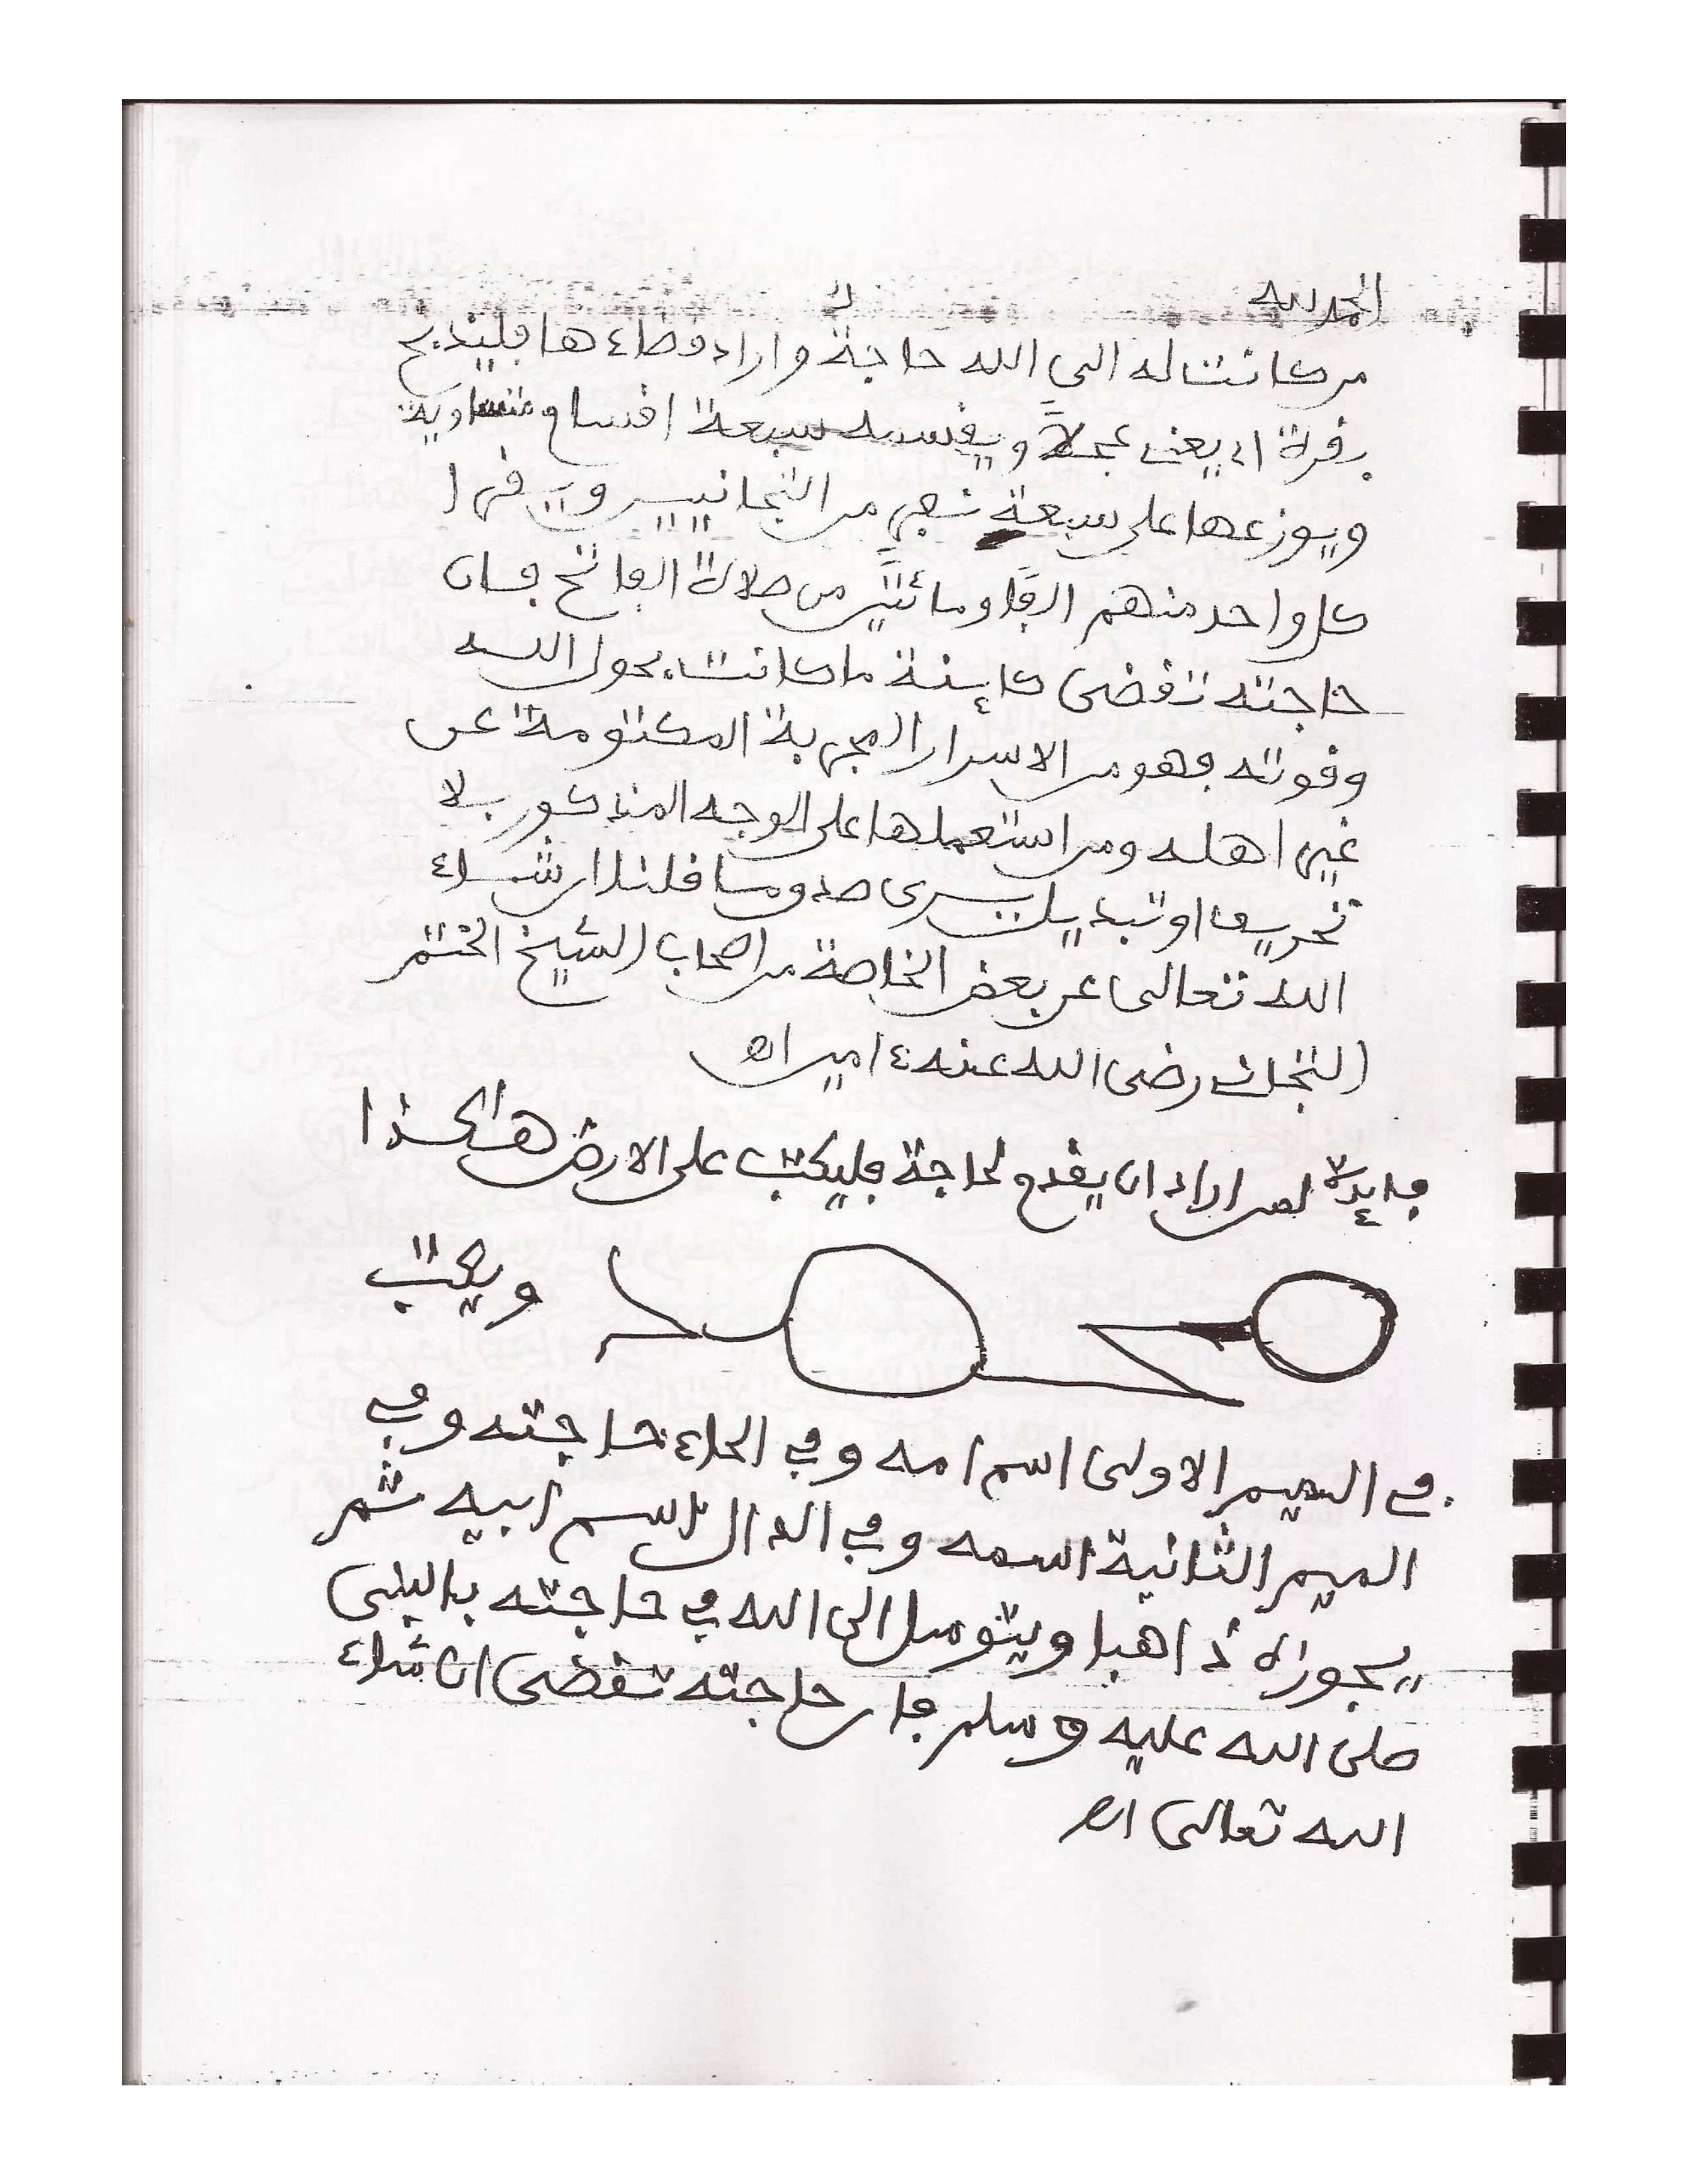 الحمد لله
من كانت له الى الله حاجة واراد قضاءها فليذبح
بقرة او يعنى عجلاً ويقسمه سبعة اقسام متساوية
ويوزعها على سبعة نفر من التجانيين ويقرا
كل واحد منهم الفاً ومائتين من صلاة الفاتح فان
حاجته تقضى كاينة ما كانت بحول الله
وقوته فهو من الاسرار المجربة المكتومة عن
غير اهله ومن استعملها على الوجه المذكور بلا
تحريف او تبديل يرى صدق ما قلنا ان شاء
الله تعالى عن بعض الخاصة من اصحاب الشيخ الختم
التجانى رضى الله عنه ءامين اه
فايدة لمن اراد ان يقدم لحاجة فليكتب على الارض هاكذا
محمد ويكتب
فى الميم الاولى اسم امه وفى الحاء حاجته وفى
الميم الثانية اسمه وفى الدال اسم ابيه ثم
يجوزه ذاهبا ويتوسل الى الله فى حاجته بالنبى
صلى الله عليه وسلم فان حاجته تقضى ان شاء
الله تعالى اه